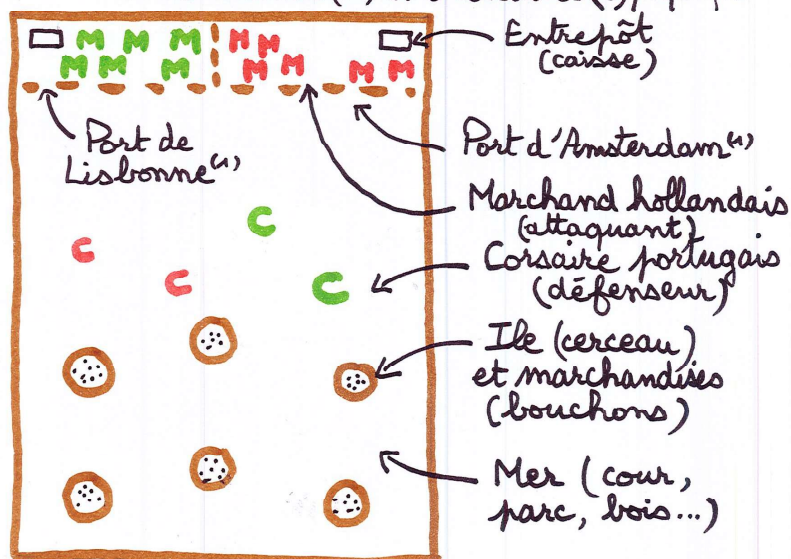 M M M M M
M M M M M M M
Entrepôt
(caisse)
Port de
Lisbonne⁽¹⁾
Port d'Amsterdam⁽¹⁾
Marchand hollandais
(attaquant)
Corsaire portugais
(défenseur)
C C
C C
Ile (cerceau)
et marchandises
(bouchons)
Mer (cour,
parc, bois...)